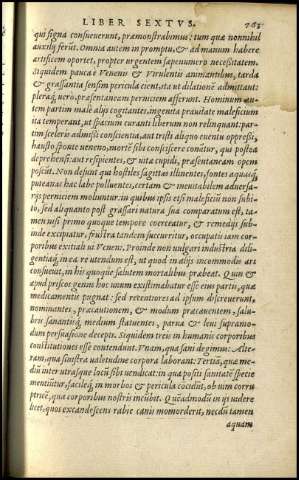 LIBER SEXTVS.
qui signa consueuerunt, præmonstrabimus: tum quæ nonnihil
auxilij ferūt. Omnia autem in promptu, & ad manum habere
artificem oportet, propter urgentem sæpenumero necessitatem.
Siquidem pauca è Venenis & Virulentis animantibus, tarda
& grassantia sensim pericula cient, ita ut dilationē admittant:
pleraq; uerò, præsentaneam perniciem afferunt. Hominum au
tem partim malè alijs cogitantes, ingenita prauitate maleficium
ita temperant, ut spacium curanti liberum non relinquant: par-
tim sceleris admissi conscientia, aut tristi aliquo euentu oppressi,
hausto sponte ueneno, mortē sibi consciscere conātur, qui postea
deprehensi aut resipientes, & uitæ cupidi, præsentaneam opem
poscūt. Non desunt qui hostiles sagittas illinentes, fontes aquasq;
puteanas hac labe polluentes, certam & ineuitabilem aduersa-
rijs perniciem moliuntur. in quibus ipsis etsi maleficiū non subi-
tò, sed aliquanto post grassari natura sua comparatum est, ta-
men uisi primo quoque tempore coerceatur, & remedijs subin-
de excipiatur, frustra tandem succurritur, occupatis iam cor-
poribus exitiali ui Veneni. Proinde non uulgari industria dili-
gentiaq́; in ea re utendum est, ut quod in alijs incommodis ars
consueuit, in his quoque salutem mortalibus præbeat. Quin &
apud priscos genus hoc usum existimabatur esse eius partis, quæ
medicamentis pugnat: sed recentiores ad ipsum discreuerunt,
nominantes, præcautionem, & modum præcauentem, salu-
bris sanantisq́; medium statuentes, parua & leui supramo-
dum persuasione decepti. Siquidem treis in humanis corporibus
constitutiones esse contendunt. Vnam, qua sani degimus: Alte-
ram, qua sinistra ualetudine corpora laborant: Tertiā, quæ me-
diū inter utrasque locū sibi uendicat: in qua positi sanitatē specie
mentiūtur, facileq́; in morbos & pericula cōcidūt, ob uim corru-
ptricē, quæ corporibus nostris incubit. Quēadmodū in ijs uidere
licet, quos excandescens rabie canis momorderit, necdū tamen
aquam